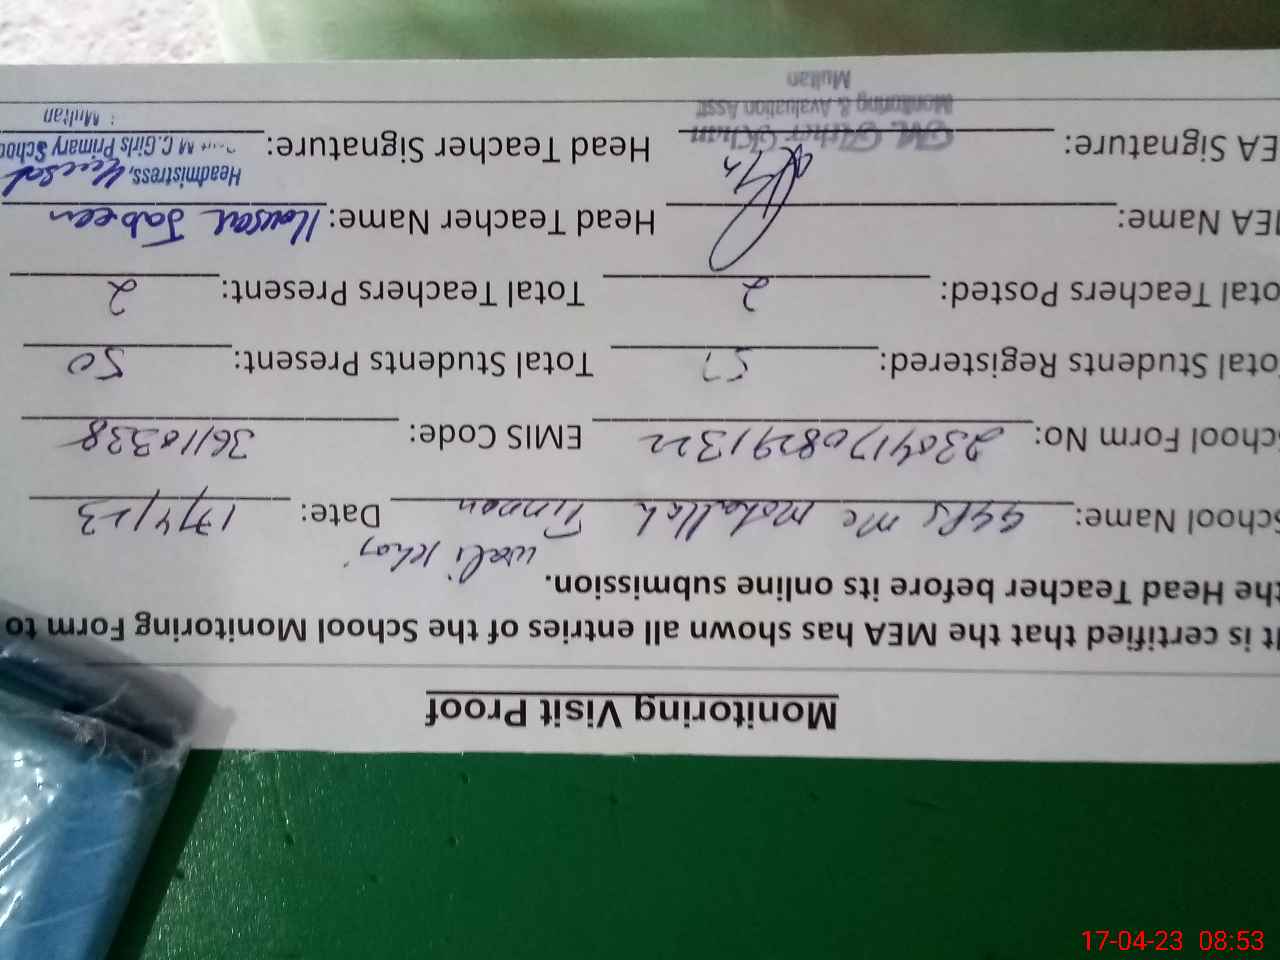 Monitoring Visit Proof
It is certified that the MEA has shown all entries of the School Monitoring Form to
the Head Teacher before its online submission.
wali
School Name: GGPS Mc Mohallah Date: 17/4/23
School Form No: 23041708291322 EMIS Code: 36110338
Total Students Registered: 57 Total Students Present: 50
Total Teachers Posted: 2 Total Teachers Present: 2
MEA Name: Head Teacher Name: Kousar Jabeen
Headmistress,
EA Signature: Khan Head Teacher Signature: M.C.Girls Primary School
Monitoring & Avaluation Asstt
Multan Multan
17-04-23 08:53